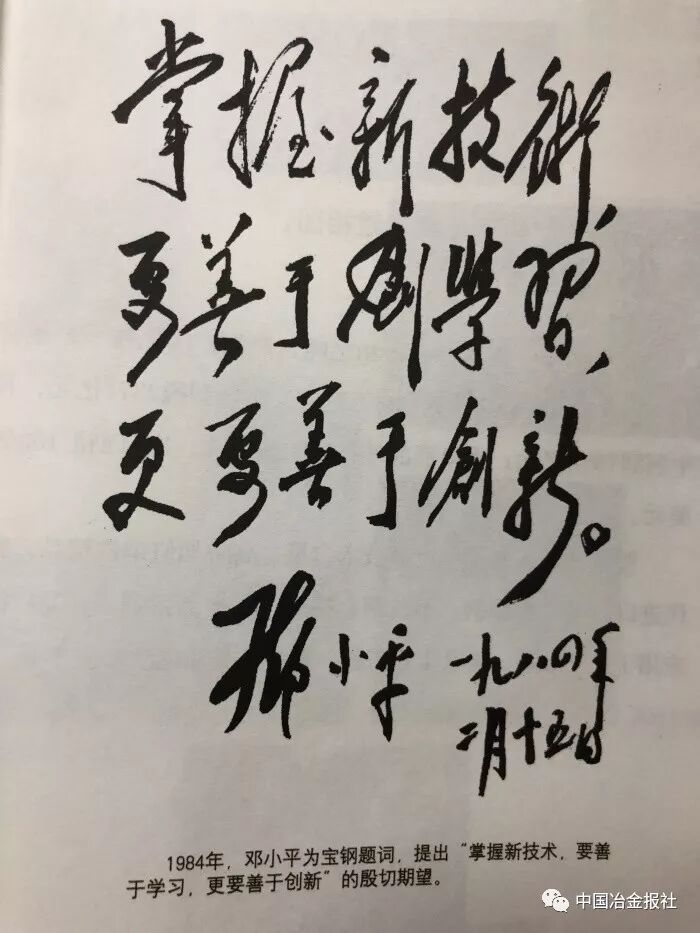 掌握新技術、
要善于創學習、
更要善于創新。
鄧小平 一九八四年
二月十五日
1984年，邓小平为宝钢题词，提出“掌握新技术，要善
于学习，更要善于创新”的殷切期望。
中国冶金报社